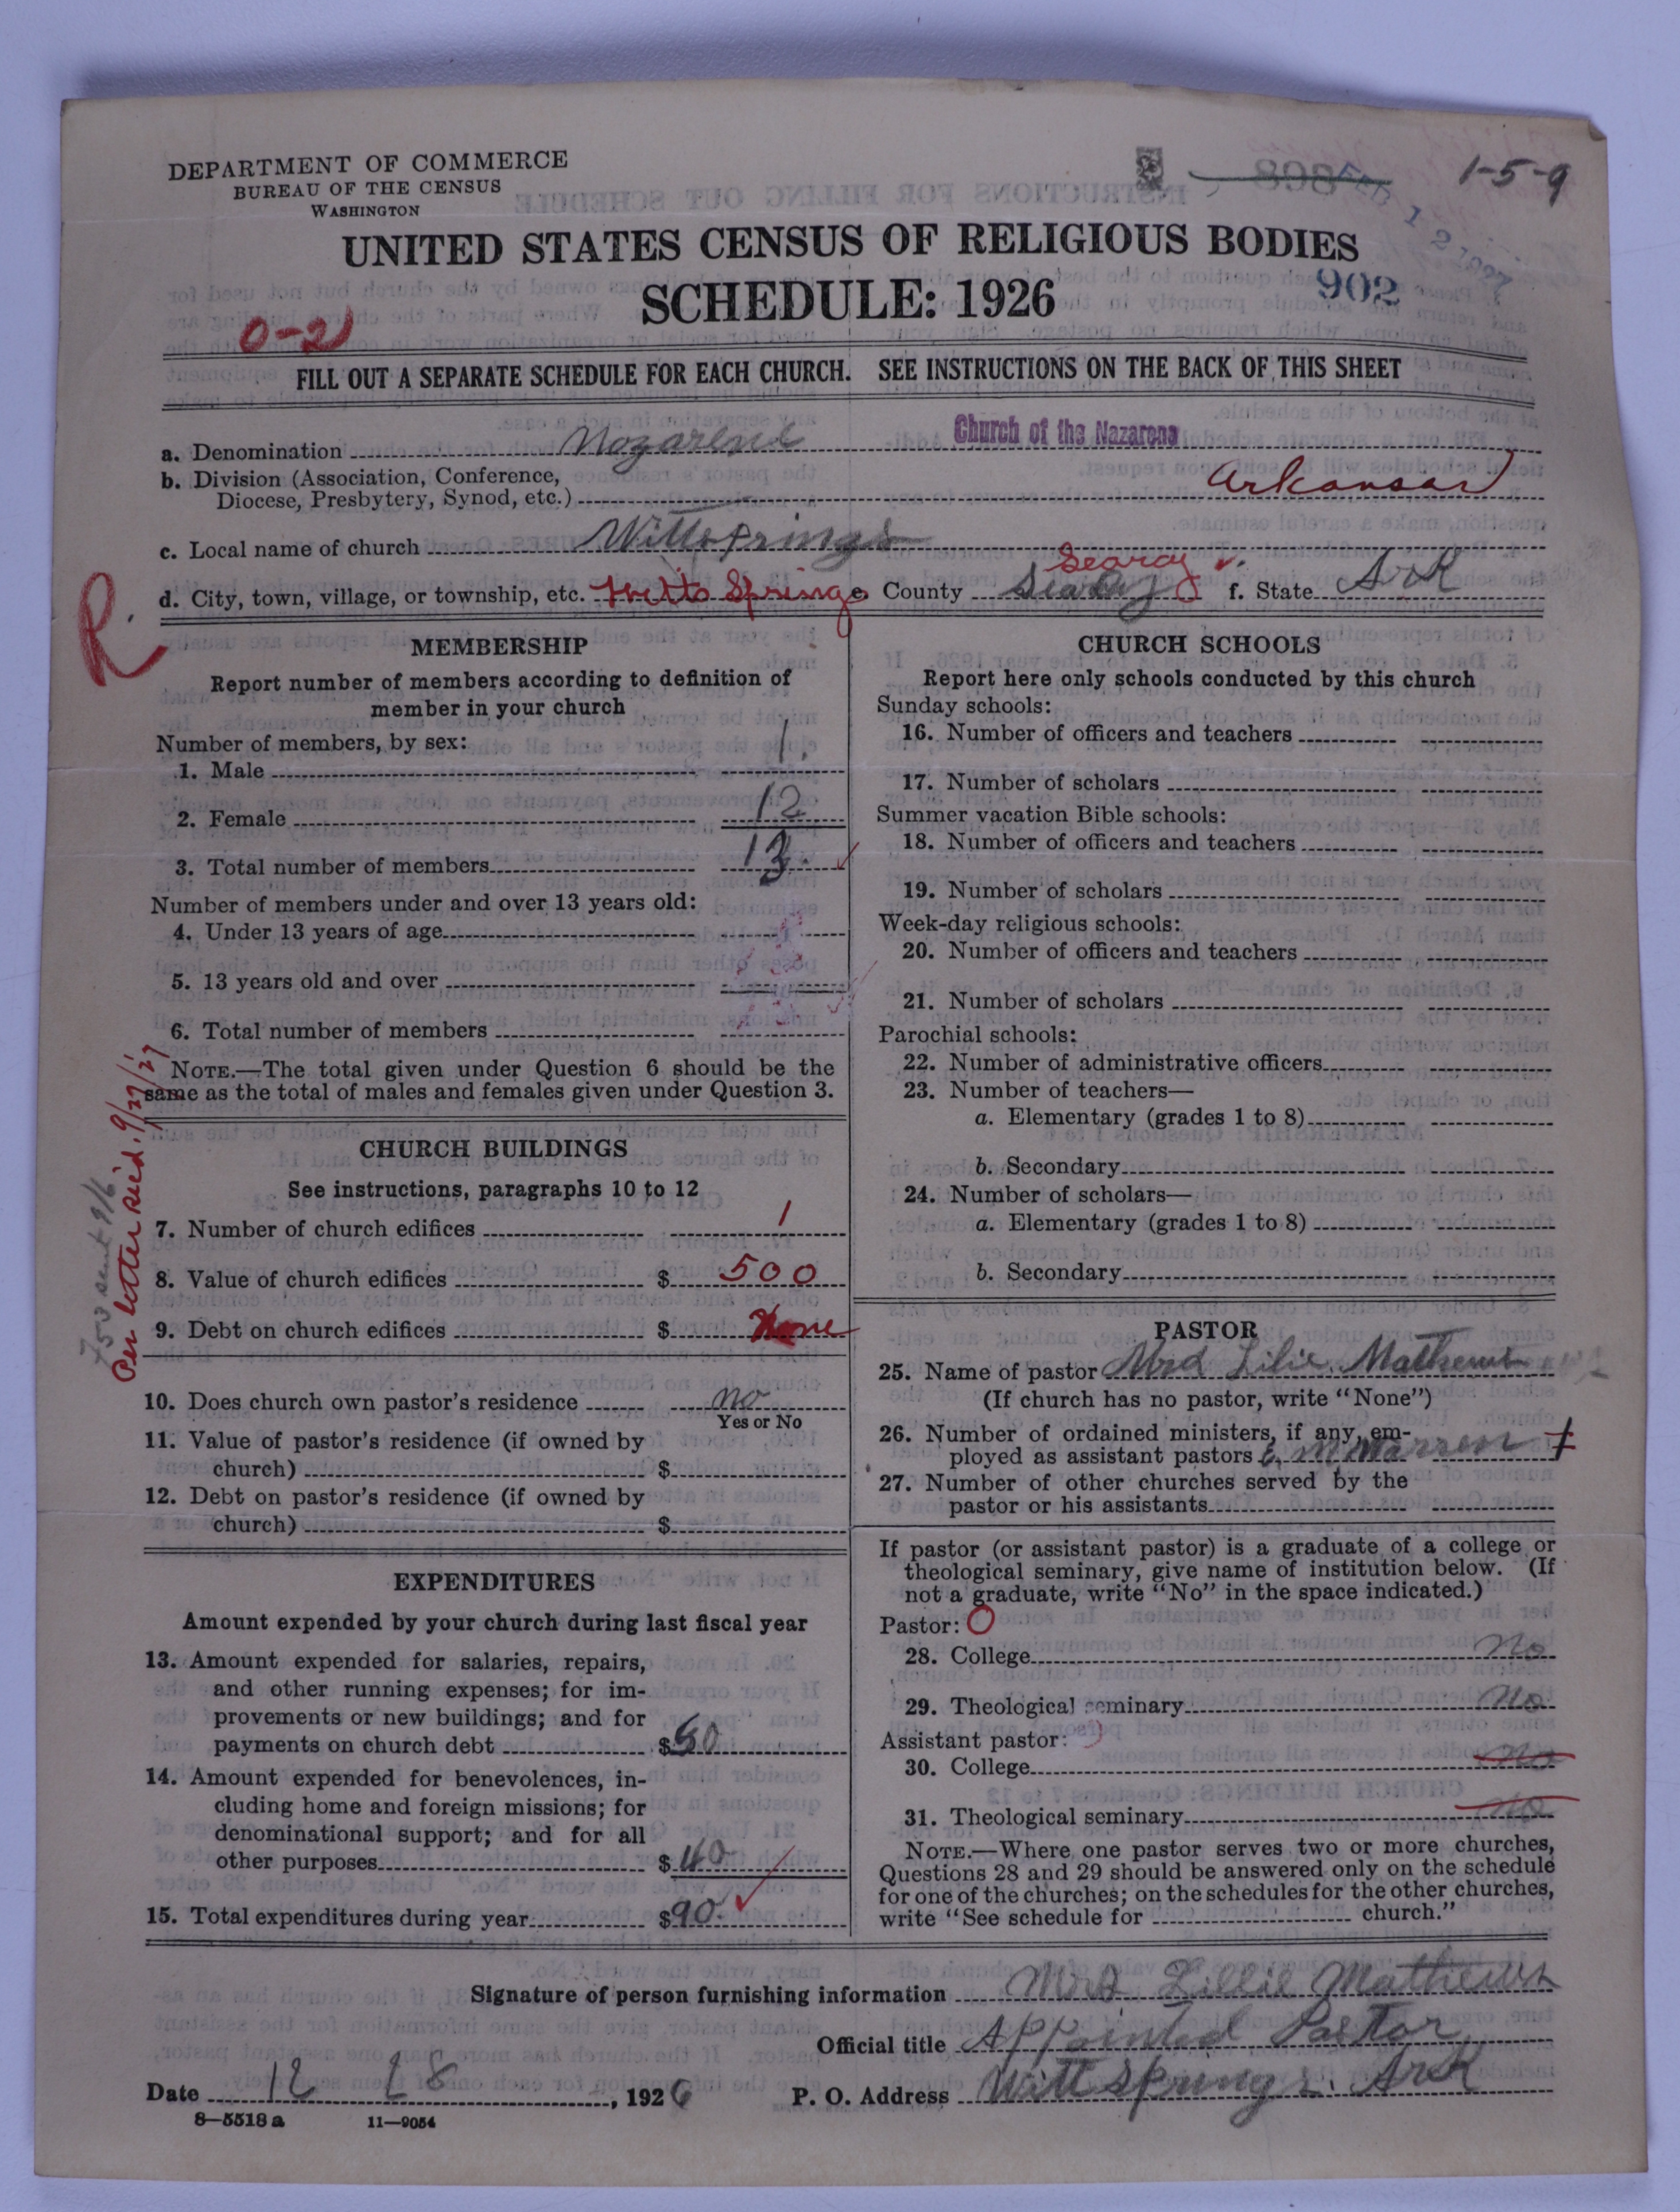 DEPARTMENT OF COMMERCE
BUREAU OF THE CENSUS
WASHINGTON
898
FEB 12 1927
1-5-9
UNITED STATES CENSUS OF RELIGIOUS BODIES
SCHEDULE: 1926
902
0-2
FILL OUT A SEPARATE SCHEDULE FOR EACH CHURCH. SEE INSTRUCTIONS ON THE BACK OF THIS SHEET
a. Denomination Nazarene Church of the Nazarene
b. Division (Association, Conference,
Diocese, Presbytery, Synod, etc.) Arkansas
c. Local name of church Wittsprings
Searcy
d. City, town, village, or township, etc. Witts Springs e. County Searcy f. State Ark
R
MEMBERSHIP
Report number of members according to definition of
member in your church
Number of members, by sex:
1. Male 1.
2. Female 12
3. Total number of members 13.
Number of members under and over 13 years old:
4. Under 13 years of age
5. 13 years old and over
6. Total number of members
NOTE.—The total given under Question 6 should be the
same as the total of males and females given under Question 3.
CHURCH BUILDINGS
See instructions, paragraphs 10 to 12
7. Number of church edifices 1
8. Value of church edifices $ 500
9. Debt on church edifices $ None
10. Does church own pastor's residence no
Yes or No
11. Value of pastor's residence (if owned by
church) $
12. Debt on pastor's residence (if owned by
church) $
sent 9/6
Per letter rec'd. 9/27/27
EXPENDITURES
Amount expended by your church during last fiscal year
13. Amount expended for salaries, repairs,
and other running expenses; for im-
provements or new buildings; and for
payments on church debt $50
14. Amount expended for benevolences, in-
cluding home and foreign missions; for
denominational support; and for all
other purposes $40
15. Total expenditures during year $90.
CHURCH SCHOOLS
Report here only schools conducted by this church
Sunday schools:
16. Number of officers and teachers
17. Number of scholars
Summer vacation Bible schools:
18. Number of officers and teachers
19. Number of scholars
Week-day religious schools:
20. Number of officers and teachers
21. Number of scholars
Parochial schools:
22. Number of administrative officers
23. Number of teachers—
a. Elementary (grades 1 to 8)
b. Secondary
24. Number of scholars—
a. Elementary (grades 1 to 8)
b. Secondary
PASTOR
25. Name of pastor Mrs Lilie Mathews
(If church has no pastor, write "None")
26. Number of ordained ministers, if any, em-
ployed as assistant pastors M Warren
27. Number of other churches served by the
pastor or his assistants
If pastor (or assistant pastor) is a graduate of a college or
theological seminary, give name of institution below. (If
not a graduate, write "No" in the space indicated.)
Pastor: O
28. College no
29. Theological seminary no
Assistant pastor:
30. College no
31. Theological seminary no
NOTE.—Where one pastor serves two or more churches,
Questions 28 and 29 should be answered only on the schedule
for one of the churches; on the schedules for the other churches,
write "See schedule for church."
Signature of person furnishing information Mrs Lillie Mathews
Official title Appointed Pastor
Date 12 18, 1926 P. O. Address Witt Springs. Ark
8—5518 a 11—9054